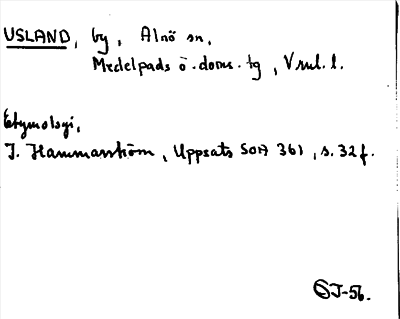 USLAND, by, Alnö sn,
Medelpads ö. doms. tg, Vnl. l.
Etymologi,
J. Hammarström, Uppsats SOA 361, s. 32 f.
SJ-56.